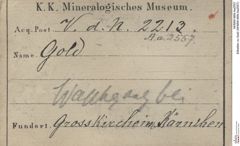 K. K. Mineralogisches Museum.
Acq. Post V. d. N. 2213.
A.a. 2557.
Name Gold
bei
Fundort: Grosskirchheim, Kärnthen